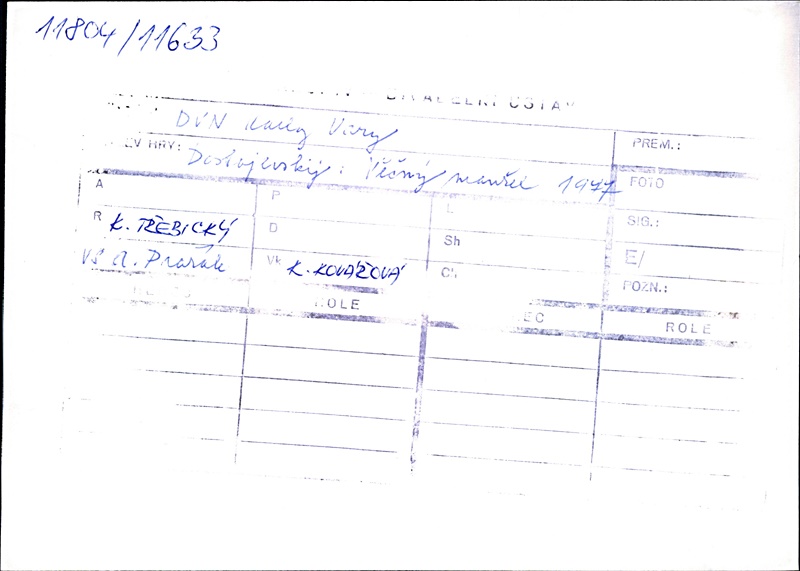 11804/11633
DIVADELNÍ ÚSTAV
DVN Karlovy Vary
PREM.:
EV HRY: Dostojevskij: Věčný manžel 1977
FOTO
A
P
L
SIG.:
R K. TŘEBICKÝ
D
Sh
E/
VS A. Pražák
Vk K. KOVÁŘOVÁ
Ch
POZN.:
ROLE
EC
ROLE